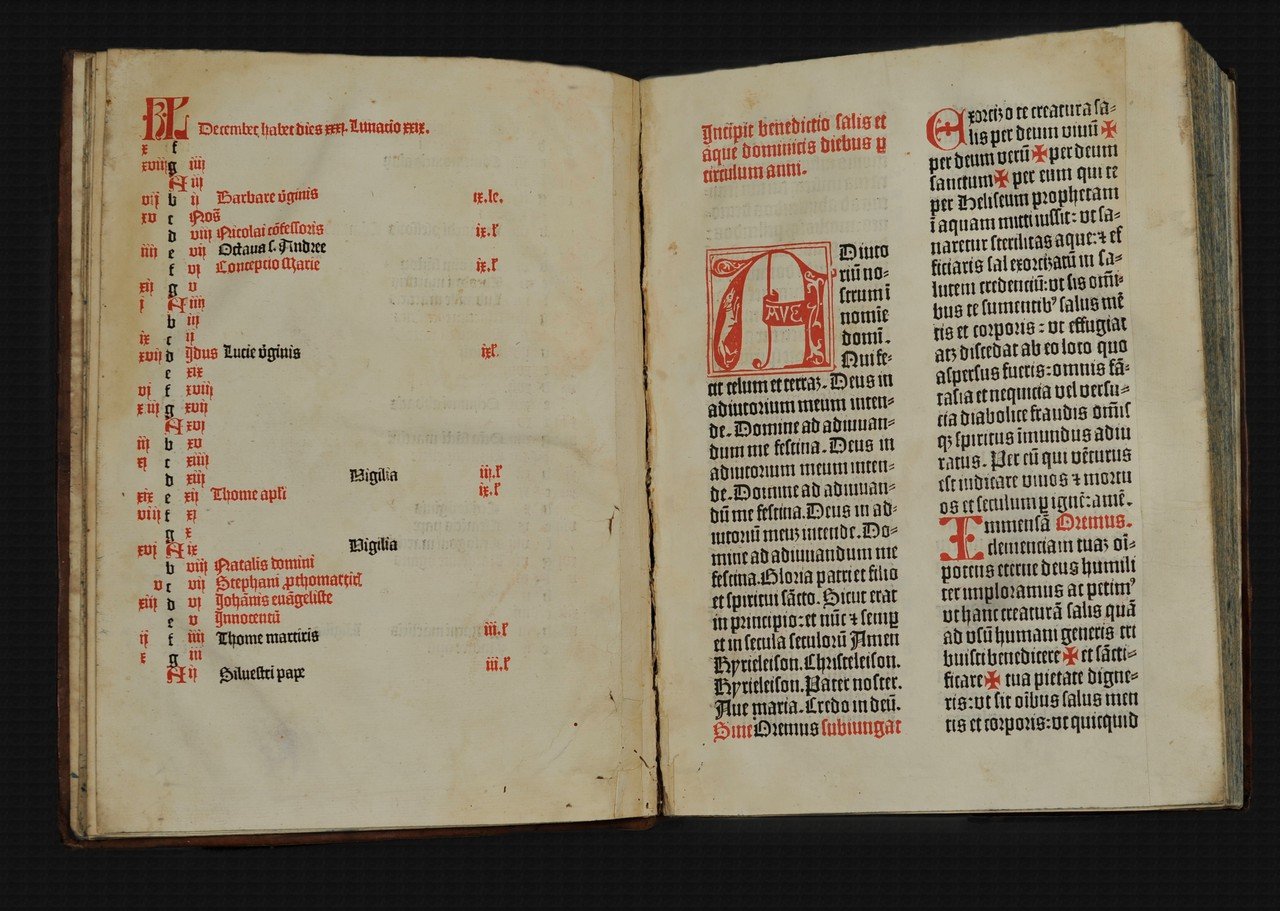 KL December habet dies xxxj. Lunacio xxix.
x f
xviij g iiij
A iij
vij b ij Barbare v̄ginis ix.lc.
xv c Noñ
d viij Nicolai cōfessoris ix.l'
iiij e vij Octaua s. Andree
f vj Concepcio Marie ix.l'
xij g v
j A iiij
b iij
ix c ij
xvij d Jdus Lucie v̄ginis ixl'.
e xix
vj f xviij
xiiij g xvij
A xvj
iij b xv
xj c xiiij
d xiij Vigilia iij.l'
xix e xij Thome apl'i ix.l'
viij f xj
g x
xvj A ix Vigilia
b viij Natalis domini
v c vij Stephani ꝓthomartiꝝ
xiij d vj Johānis euāgeliste
e v Jnnocentū
ij f iiij Thome martiris iii.l'
x g iij
A ij Siluestri pape iii.l'
Jncipit benedictio salis et
aque dominicis diebus ꝑ
circulum anni.
ADiuto
riū no-
strum ī
nomīe
domī.
Qui fe-
cit celum et terrāꝫ. Deus in
adiutorium meum inten-
de. Domine ad adiuuan-
dum me festina. Deus in
adiutorium meum inten-
de. Domine ad adiuuan-
dū me festina. Deus in ad-
iutoriū meuꝫ intende. Do-
mine ad adiuuandum me
festina. Gloria patri et filio
et spiritui sācto. Sicut erat
in principio: et nūc ⁊ semꝑ
et in secula seculorū Amen
Kyrieleison. Christeleison.
Kyrieleison. Pater noster.
Aue maria. Credo in deū.
Sine Oremus subiungat
AVE
Exorcizo te creatura sa-
lis per deum viuū ✠
per deum verū ✠ per deum
sanctum ✠ per eum qui te
per Heliseum prophetam
ī aquam mitti iussit: vt sa-
naretur sterilitas aque: ⁊ ef
ficiaris sal exorcizatū in sa-
lutem credenciū: vt sis omī-
bus te sumentibꝰ salus mē
tis et corporis: vt effugiat
atꝫ discedat ab eo loco quo
aspersus fueris: omnis fā-
tasia et nequicia vel versu-
cia diabolice fraudis omīs
qꝫ spiritus īmundus adiu
ratus. Per eū qui vēturus
est iudicare viuos ⁊ mortu
os et seculum ꝑ ignē: amē.
Immensā Oremus.
clemenciam tuaꝫ oī-
potens eterne deus humili
ter imploramus ac petimꝰ
vt hanc creaturā salis quā
ad vsū humani generis tri
buisti benedicere ✠ et sācti-
ficare ✠ tua pietate digne-
ris: vt sit oībus salus men
tis et corporis: vt quicquid